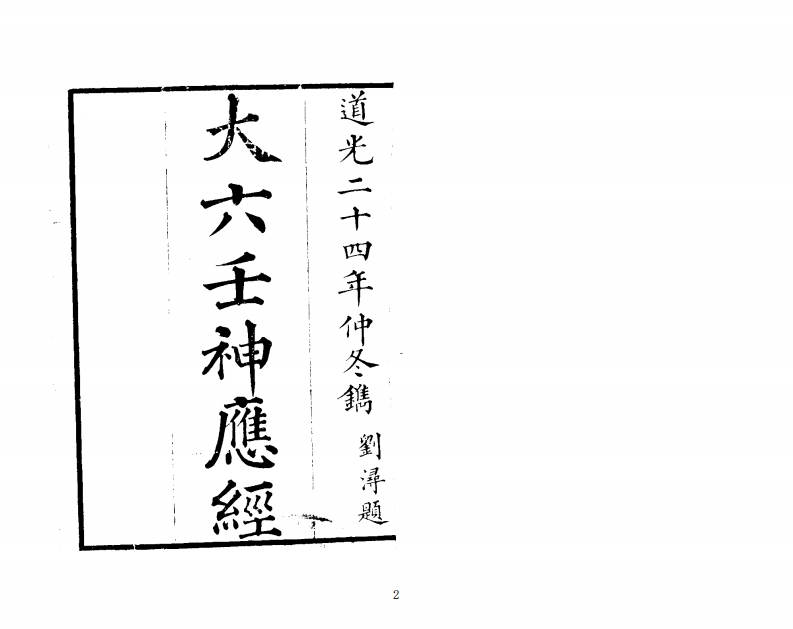 道光二十四年仲冬鐫
劉潯題
大六壬神應經
2